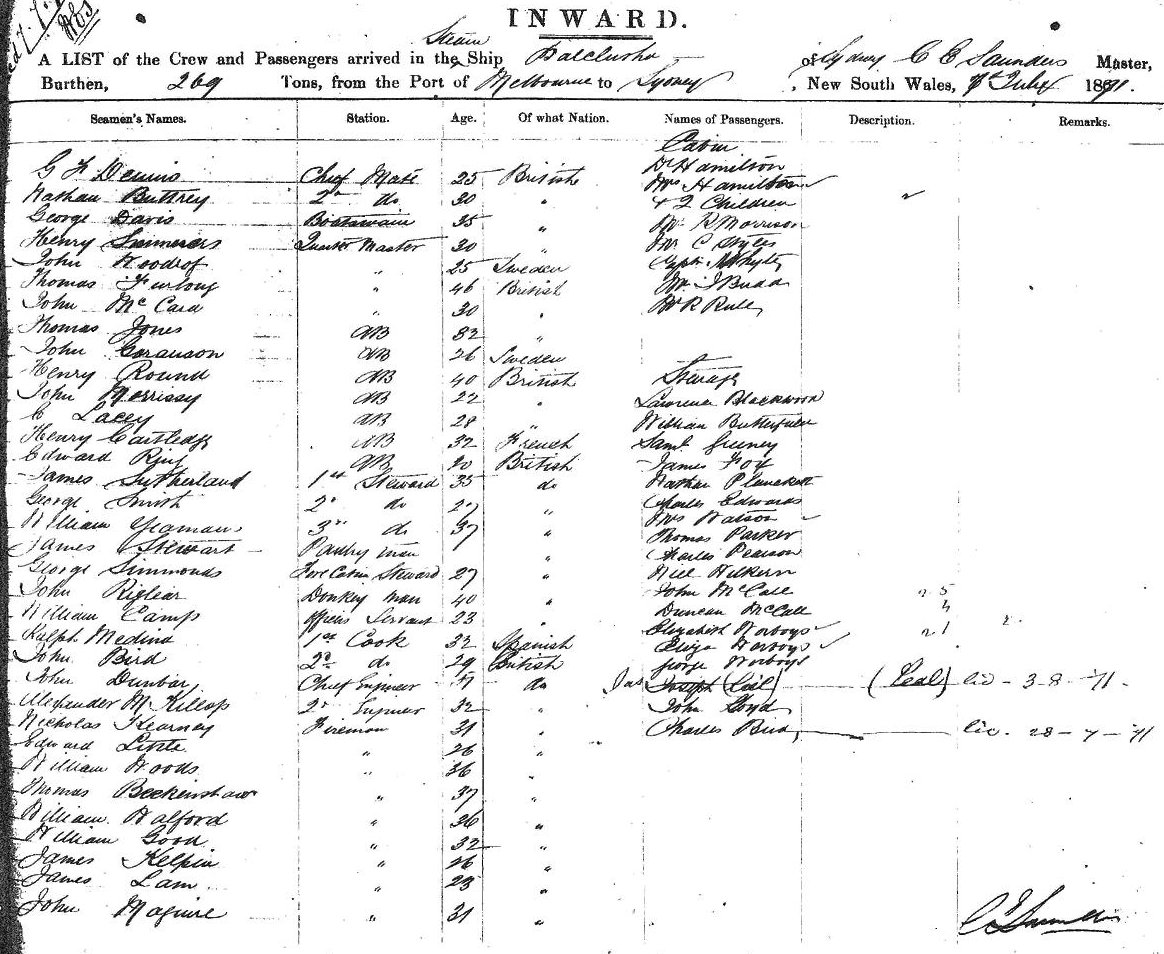 INWARD.
A LIST of the Crew and Passengers arrived in the Steam Ship Balclutha of Sydney C E Saunders Master,
Burthen, 269 Tons, from the Port of Melbourne to Sydney, New South Wales, 7th July 1871.
Seamen's Names. Station. Age. Of what Nation. Names of Passengers. Description. Remarks.
Cabin
G F Dennis Chief Mate 25 British Dr Hamilton
Nathan Buttrey 2nd do 30 " Mrs Hamilton
George Davis Boatswain 35 " + 2 Children
Henry Summers Quarter Master 30 " Mr R Morrison
John Woodrof " 25 Sweden Mr C Styles
Thomas Furlong " 46 British Capt Whyte
John McCard " 30 " Mr J Budd
Thomas Jones AB 32 " Mr R Rule
John Goranson AB 26 Sweden
Henry Round AB 40 British Steerage
John Morrissy AB 22 " Lawrence Blackwood
C Lacey AB 28 " William Butterfield
Henry Cartledge AB 32 French Saml Greeney
Edward Ring AB 20 British James Fox
James Sutherland 1st Steward 35 do Nathan Plunckett
George Smith 2nd do 27 " Charles Edwards
William Yeamans 3rd do 37 " Mrs Watson
James Stewart Pantry man " Thomas Parker
George Simmonds Fore Cabin Steward 27 " Charles Pearson
John Riglear Donkey man 40 " Niel Wilkern
William Camp Officers Servant 23 " John McCall 25
Ralph Medina 1st Cook 32 Spanish Duncan McCall 4
John Bird 2nd do 29 British Elizabeth Worboys 21
John Dunbar Chief Engineer do Eliza Worboys
Alexander McKillop 2nd Engineer 32 " George Worboys
Nicholas Kearney Fireman 31 " Jas Joseph (Leal) (Leal) lic - 3-8-71.
Edward Little " 26 " John Loyd
William Woods " 36 " Charles Bird, lic. 28-7-71
Thomas Beckenshaw " 37 "
William Walford " 36 "
William Good " 32 "
James Kelpin " 26 "
James Lam " 23 "
John Maguire " 31 "
C E Saunders